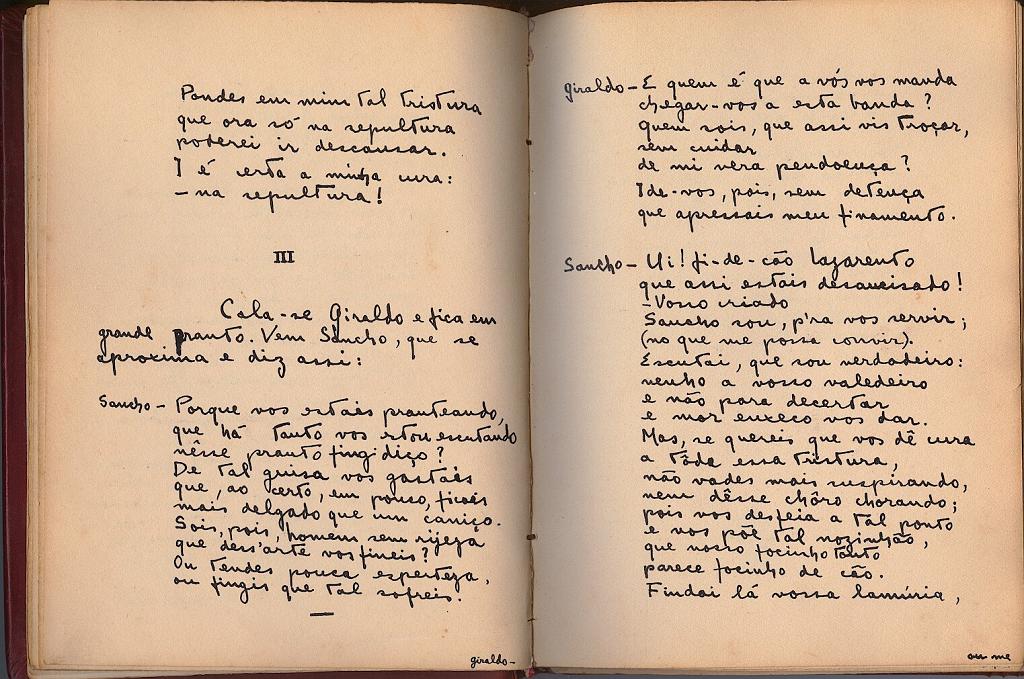 Pondes em mim tal tristura
que ora só na sepultura
poderei ir descansar.
I é certa a minha cura:
– na sepultura!
III
Cala-se Giraldo e fica em
grande pranto. Vem Sancho, que se
aproxima e diz assi:
Sancho – Porque vos estais pranteando,
que há tanto vos estou escutando
nêsse pranto fingidiço?
De tal guisa vos gastais
que, ao certo, em pouco, ficais
mais delgado que um caniço.
Sois, pois, homem sem rijeza
que dess'arte vos fineis?
Ou tendes pouca esperteza,
ou fingis que tal sofreis.
giraldo –
giraldo – E quem é que a vós vos manda
chegar-vos a esta banda?
Quem sois, que assi vis troçar,
sem cuidar
de mi vera pendoença?
Ide-vos, pois, sem detença
que apressais meu finamento.
Sancho – Ui! fi-de-cão lazarento
que assi estais desavisado!
– Vosso criado
Sancho sou, p'ra vos servir;
(no que me possa convir).
Escutai, que sou verdadeiro:
venho a vosso valedeiro
e não para decertar
e mor enxeco vos dar.
Mas, se quereis que vos dê cura
a tôda essa tristura,
não vades mais suspirando,
nem dêsse chôro chorando;
pois vos desfeia a tal ponto
e vos põe tal nozinhão,
que vosso focinho tonto
parece focinho de cão.
Findai lá vossa lamúria,
ou me